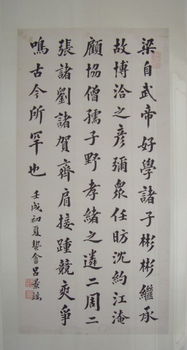 梁自武帝好學諸子彬彬繼承
故博洽之彥彌衆任昉沈約江淹
顧協僧孺子野孝緒之遴二周二
張諸劉諸賀齊肩接踵競爽爭
鳴古今所罕也 壬戌初夏 呂